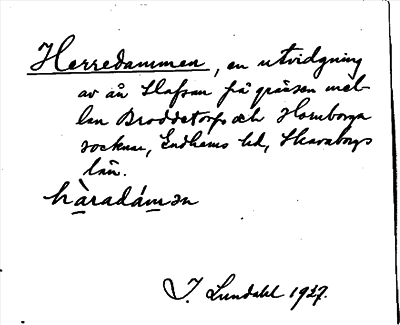 Herredammen, en utvidgning
av ån Slafsan på gränsen mel-
lan Broddetorps och Hornborga
socknar, Gudhems hd, Skaraborgs
län.
hàradámən
I. Lundahl 1927.